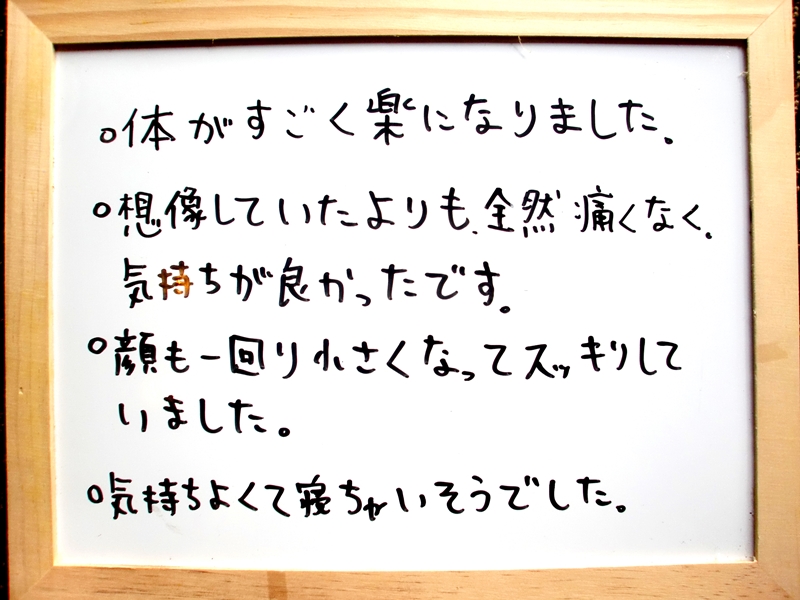 ○体がすごく楽になりました。
○想像していたよりも、全然痛くなく、
気持ちが良かったです。
○顔も一回り小さくなってスッキリして
いました。
○気持ちよくて寝ちゃいそうでした。